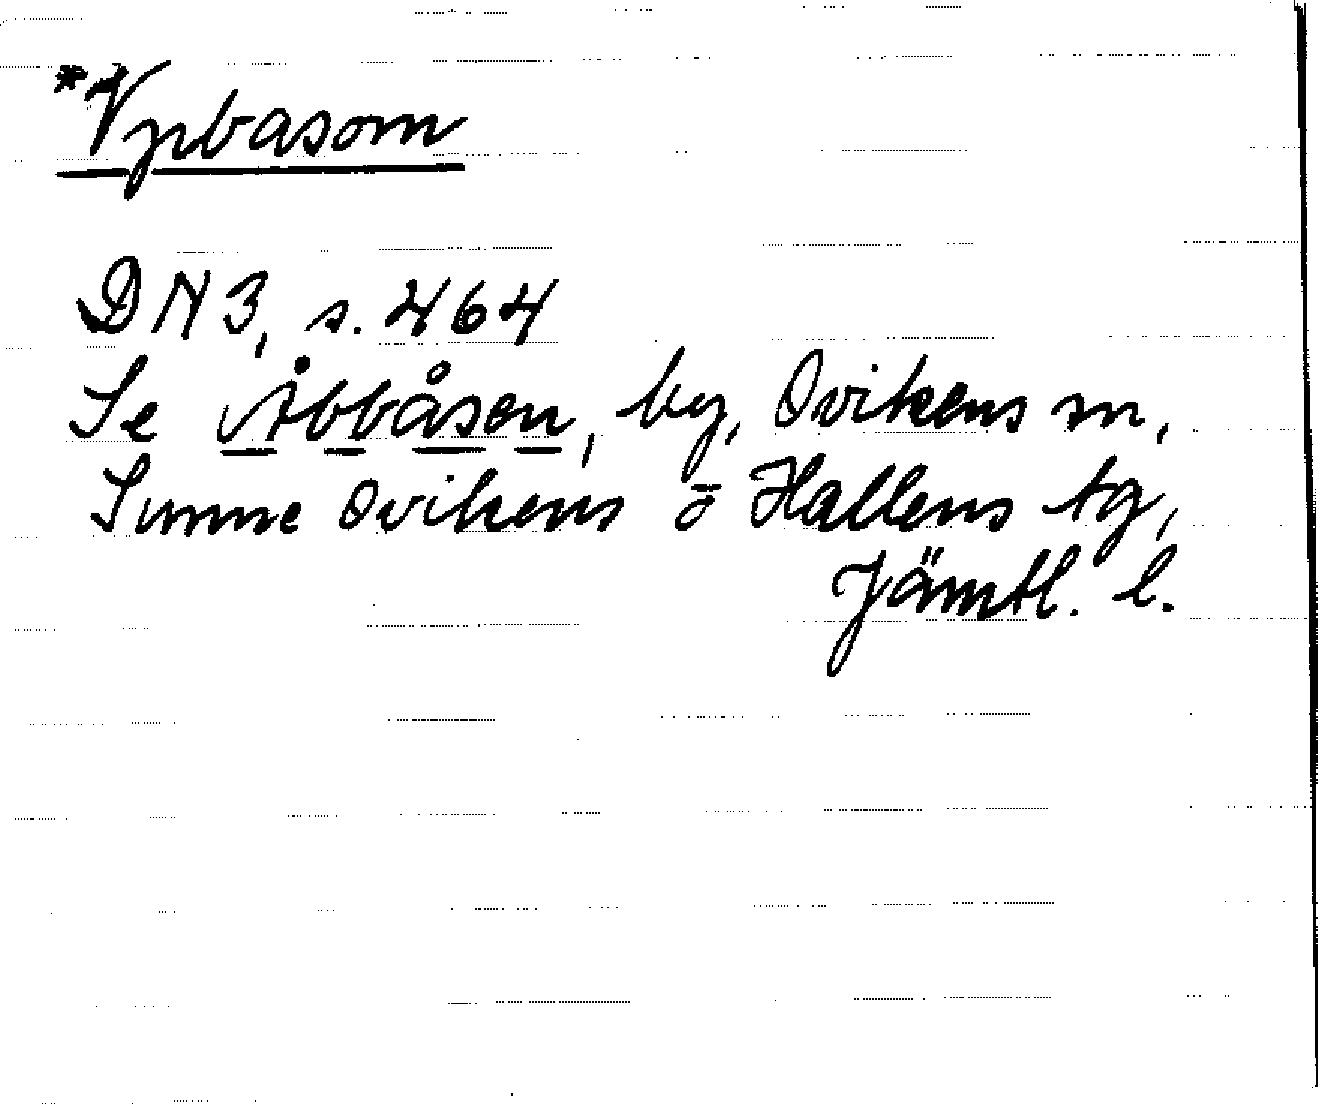 *Vpbasom
DN 3, s. 464
Se Åbbåsen, by, Ovikens sn,
Sunne Ovikens o Hallens tg,
Jämtl. l.